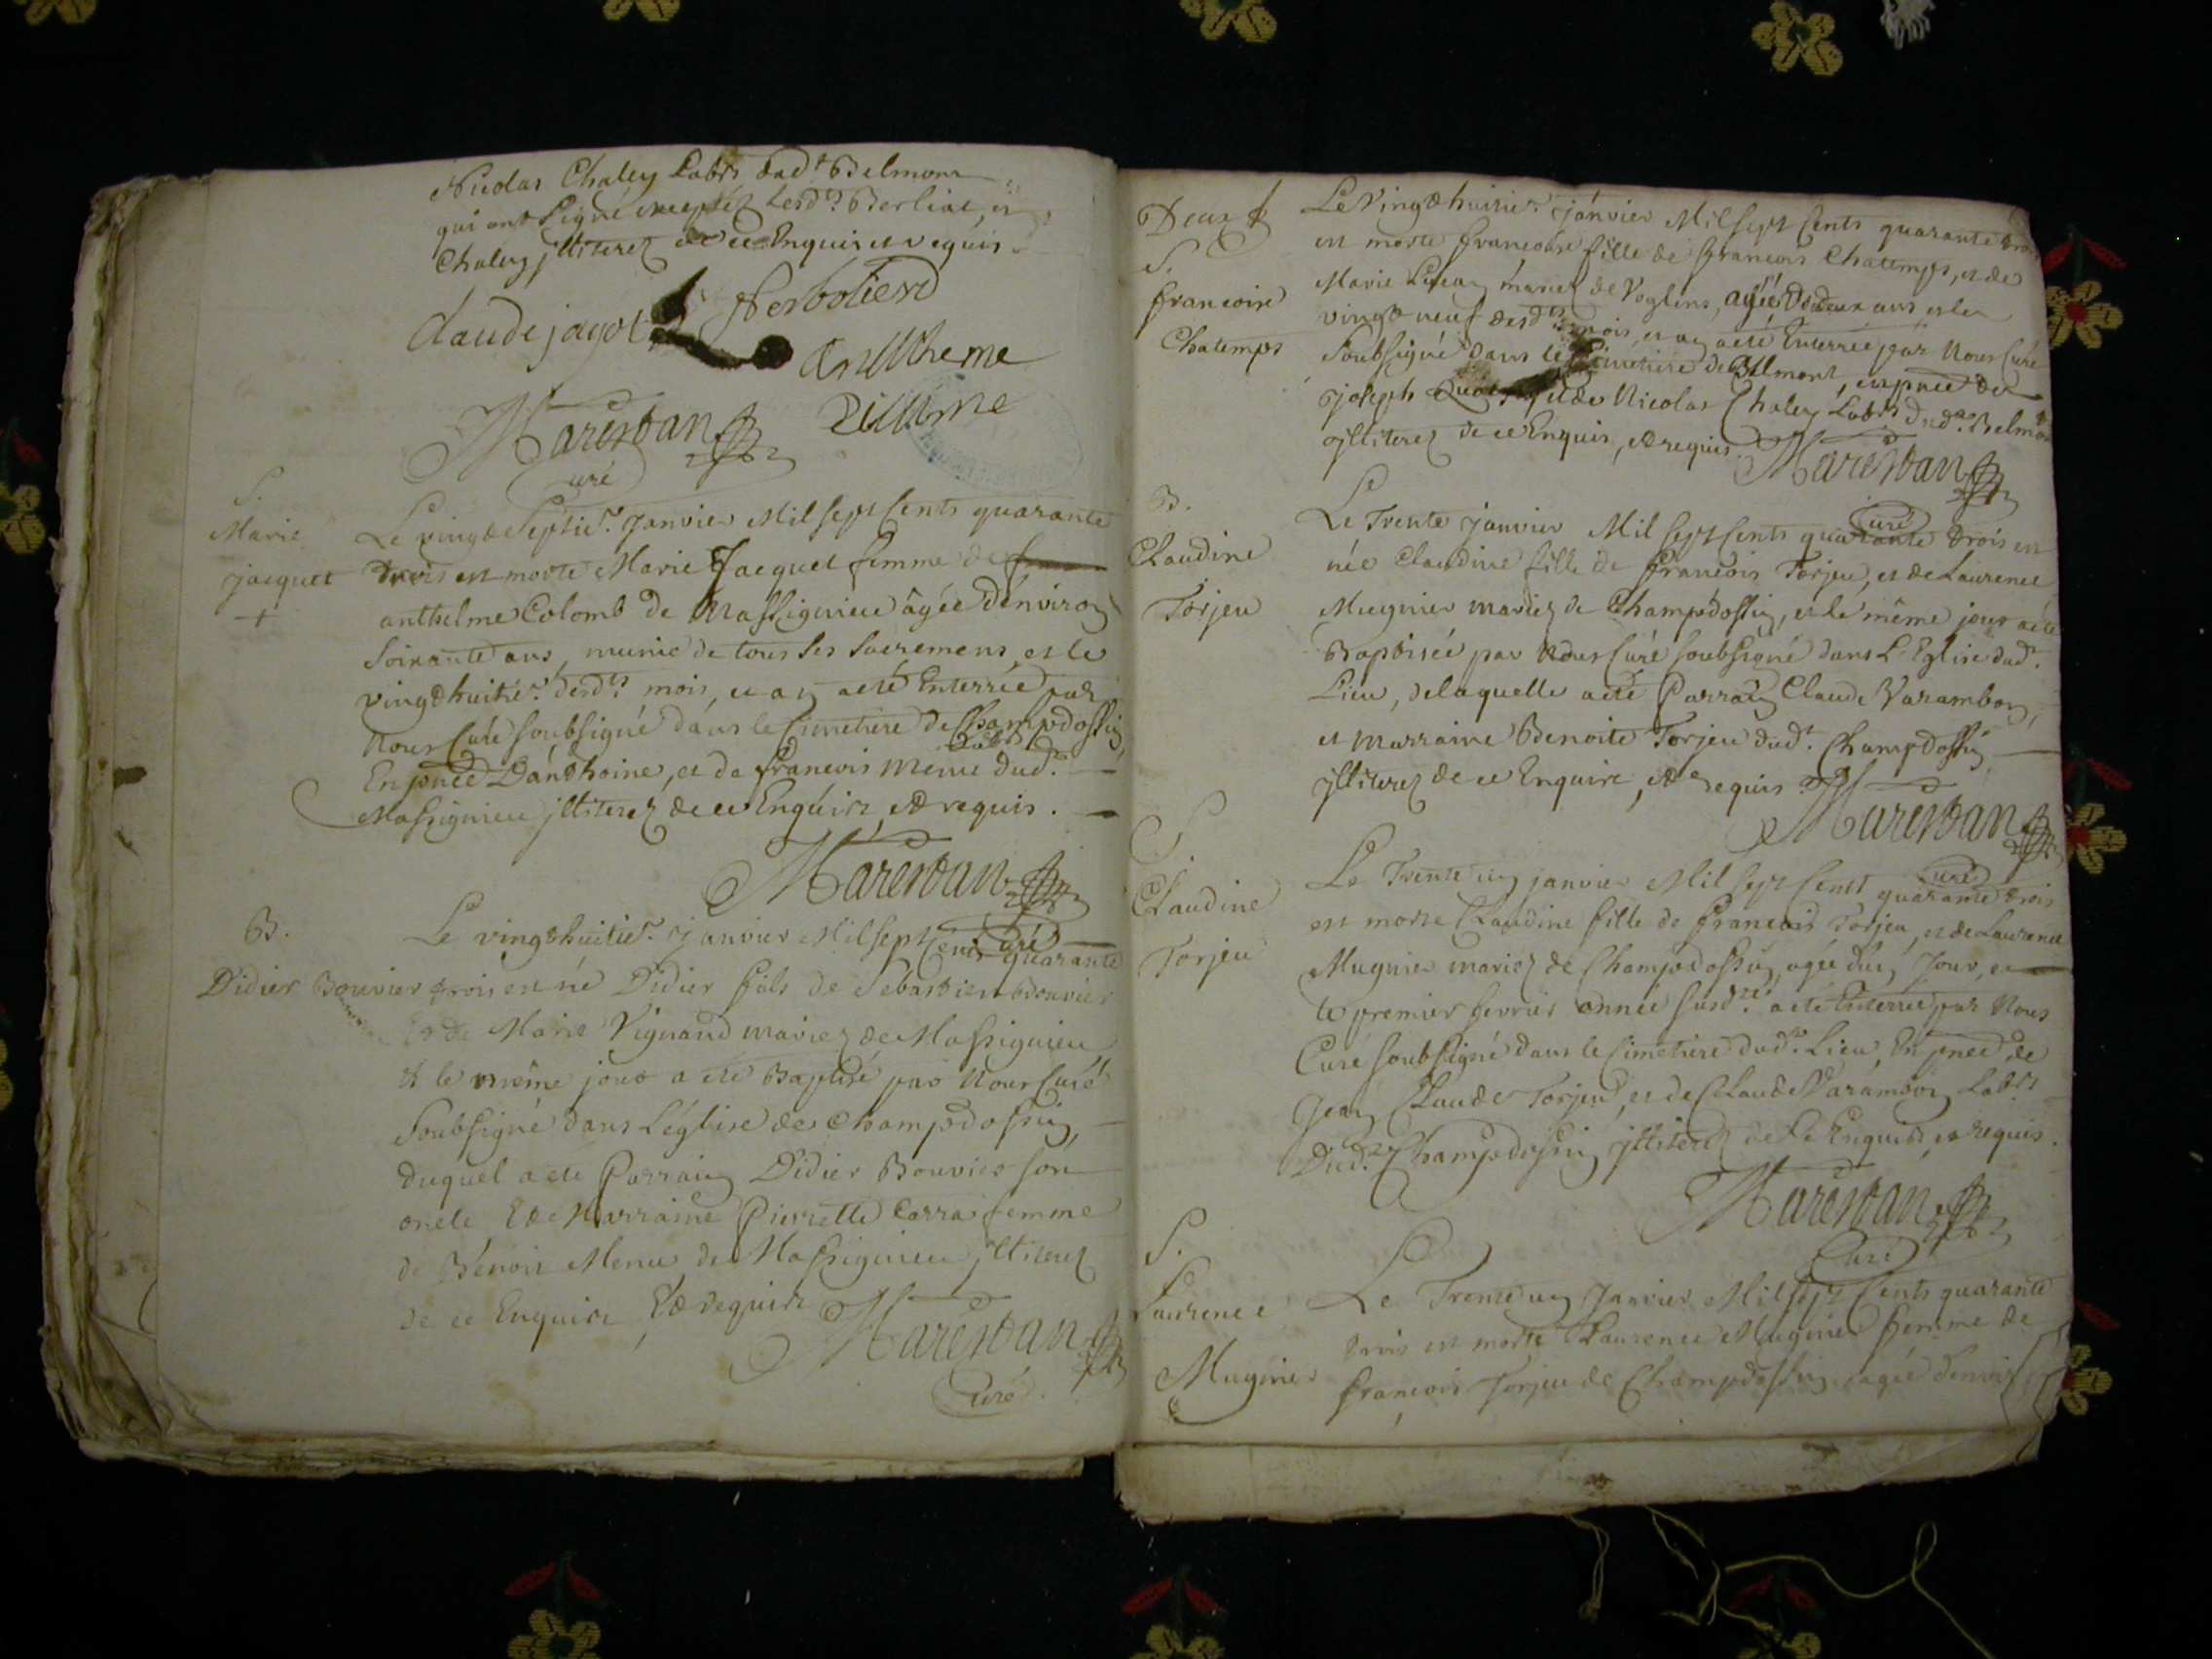 Nicolas Chaley Labrs dud.t Belmont
qui ont signé exceptéz lesd.ts Berliat, et
Chaley jlliterez de ce Enquis et requis
claude jagot
anthelme
Marestan
Curé
S.
Marie
jacquet
+
Le vingt Septie.r Janvier Mil Sept Cents quarante
trois est morte Marie Jacquet femme de
anthelme Colomb de Massignieu âgée d'environ
Soixante ans, munie de tous ses Sacremens, et le
vingt huitie.r desd.ts mois, et an a eté Enterrée par
Nous Curé soubsigné dans le Cimetiere de Champdossin,
En pnce D'anthoine, et de francois Menu Labrs dud.t
Massignieu jlliterez de ce Enquis, et requis.
Marestan
Curé
B.
Didier Bouvier
Le vingt huitie.r Janvier Mil Sept Cents quarante
trois est né Didier fils de Sebastien Bouvier
Et de Marie Vignand mariez de Massignieu
et le même jour a eté Baptisé par Nous Curé
Soubsigné dans L'église de Champdossin,
duquel a eté Parrain Didier Bouvier son
oncle, Et Marraine Pierrette Carra femme
de Benoit Menu de Massignieu jlliterez
de ce Enquis Et requis
Marestan
Curé
Deux f
S.
francoise
Chatemps
Le Vingt huitie.r janvier Mil Sept Cents quarante trois
est morte francoise fille de francois Chatemps, et de
Marie mariez de Voglens, agée de deux ans et le
vingt neuf desd.ts mois, et an a eté Enterrée par Nous Curé
Soubsigné dans le Cimetiere de Belmont, en pnce de
joseph et de Nicolas Chaley Labrs dud.t Belmont
jlliterez de ce Enquis, et requis.
Marestan
Curé
B.
Claudine
Torjeu
Le Trente janvier Mil Sept Cents quarante trois est
née Claudine fille de francois Torjeu, et de Laurence
Mugnier mariez de Champdossin, et le même jour a eté
Baptisée par Nous Curé soubsigné dans L'Eglise dud.t
Lieu, de laquelle a eté Parrain Claude Varambon,
et marraine Benoite Torjeu dud.t Champdossin
jlliterez de ce Enquis, et requis
Marestan
Curé
S.
Claudine
Torjeu
Le Trente un janvier Mil Sept Cents quarante trois
est morte Claudine fille de francois Torjeu, et de Laurence
Mugnier mariez de Champdossin, agée d'un Jour, et
le premier fevrier année susd.te a eté Enterrée par Nous
Curé soubsigné dans le Cimetiere dud.t Lieu, En pnce de
Jean Claude Torjeu, et de Claude Varambon Labrs
Dud.t Champdossin jlliterez de ce Enquis, et requis.
Marestan
Curé
S.
Laurence
Mugnier
Le Trente un Janvier Mil Sept Cents quarante
trois est morte Laurence Mugnier femme de
francois Torjeu de Champdossin agée d'environ